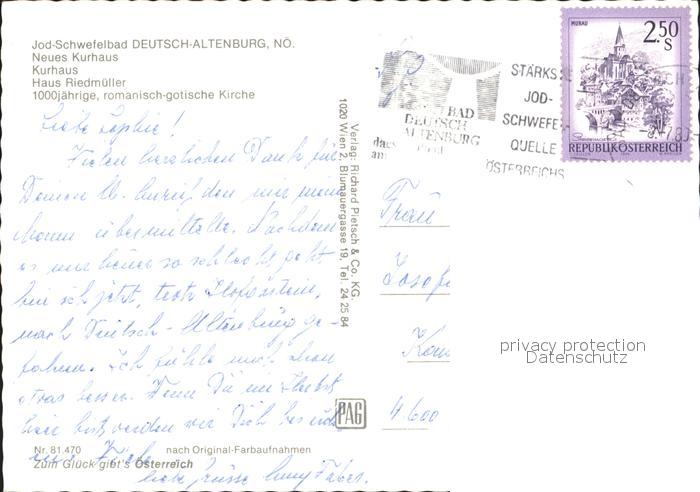 Jod-Schwefelbad DEUTSCH-ALTENBURG, NÖ.
Neues Kurhaus
Kurhaus
Haus Riedmüller
1000jährige, romanisch-gotische Kirche
Liebe Sophie!
Vielen herzlichen Dank für
Deinen lb. den mir
übermittelte. Nachdem
es mir heuer so schlecht geht
bin ich jetzt,
nach Deutsch-Altenburg ge-
fahren. Ich fühle mich schon
etwas besser. Wenn Du im Herbst
hier bist, werden wir Dich
liebe Grüsse
Nr. 81.470 nach Original-Farbaufnahmen
Zum Glück gibt's Österreich
Verlag: Richard Pietsch & Co. KG.
1020 Wien 2, Blumauergasse 19, Tel. 24 25 84
PAG
BAD
DEUTSCH
ALTENBURG
STÄRKSTE
JOD-
SCHWEFEL
QUELLE
ÖSTERREICHS
MURAU
2.50
S
REPUBLIK ÖSTERREICH
Frau
Josef
4600
privacy protection
Datenschutz